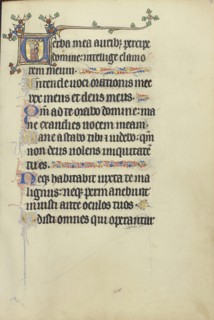 Verba mea auribꝫ percipe
domine: intellige clamo
rem meum.
Intende uoci orationis mee
rex meus et deus meus.
Qm̄ ad te orabo domine: ma
ne exaudies uocem meam.
Mane astabo tibi ⁊ uidebo: qm̄
non deus uolens iniquitatē
tu es.
Neqꝫ habitabit iuxta te ma
lignus: neqꝫ permanebunt
iniusti ante oculos tuos.
Odisti omnes qui operantur